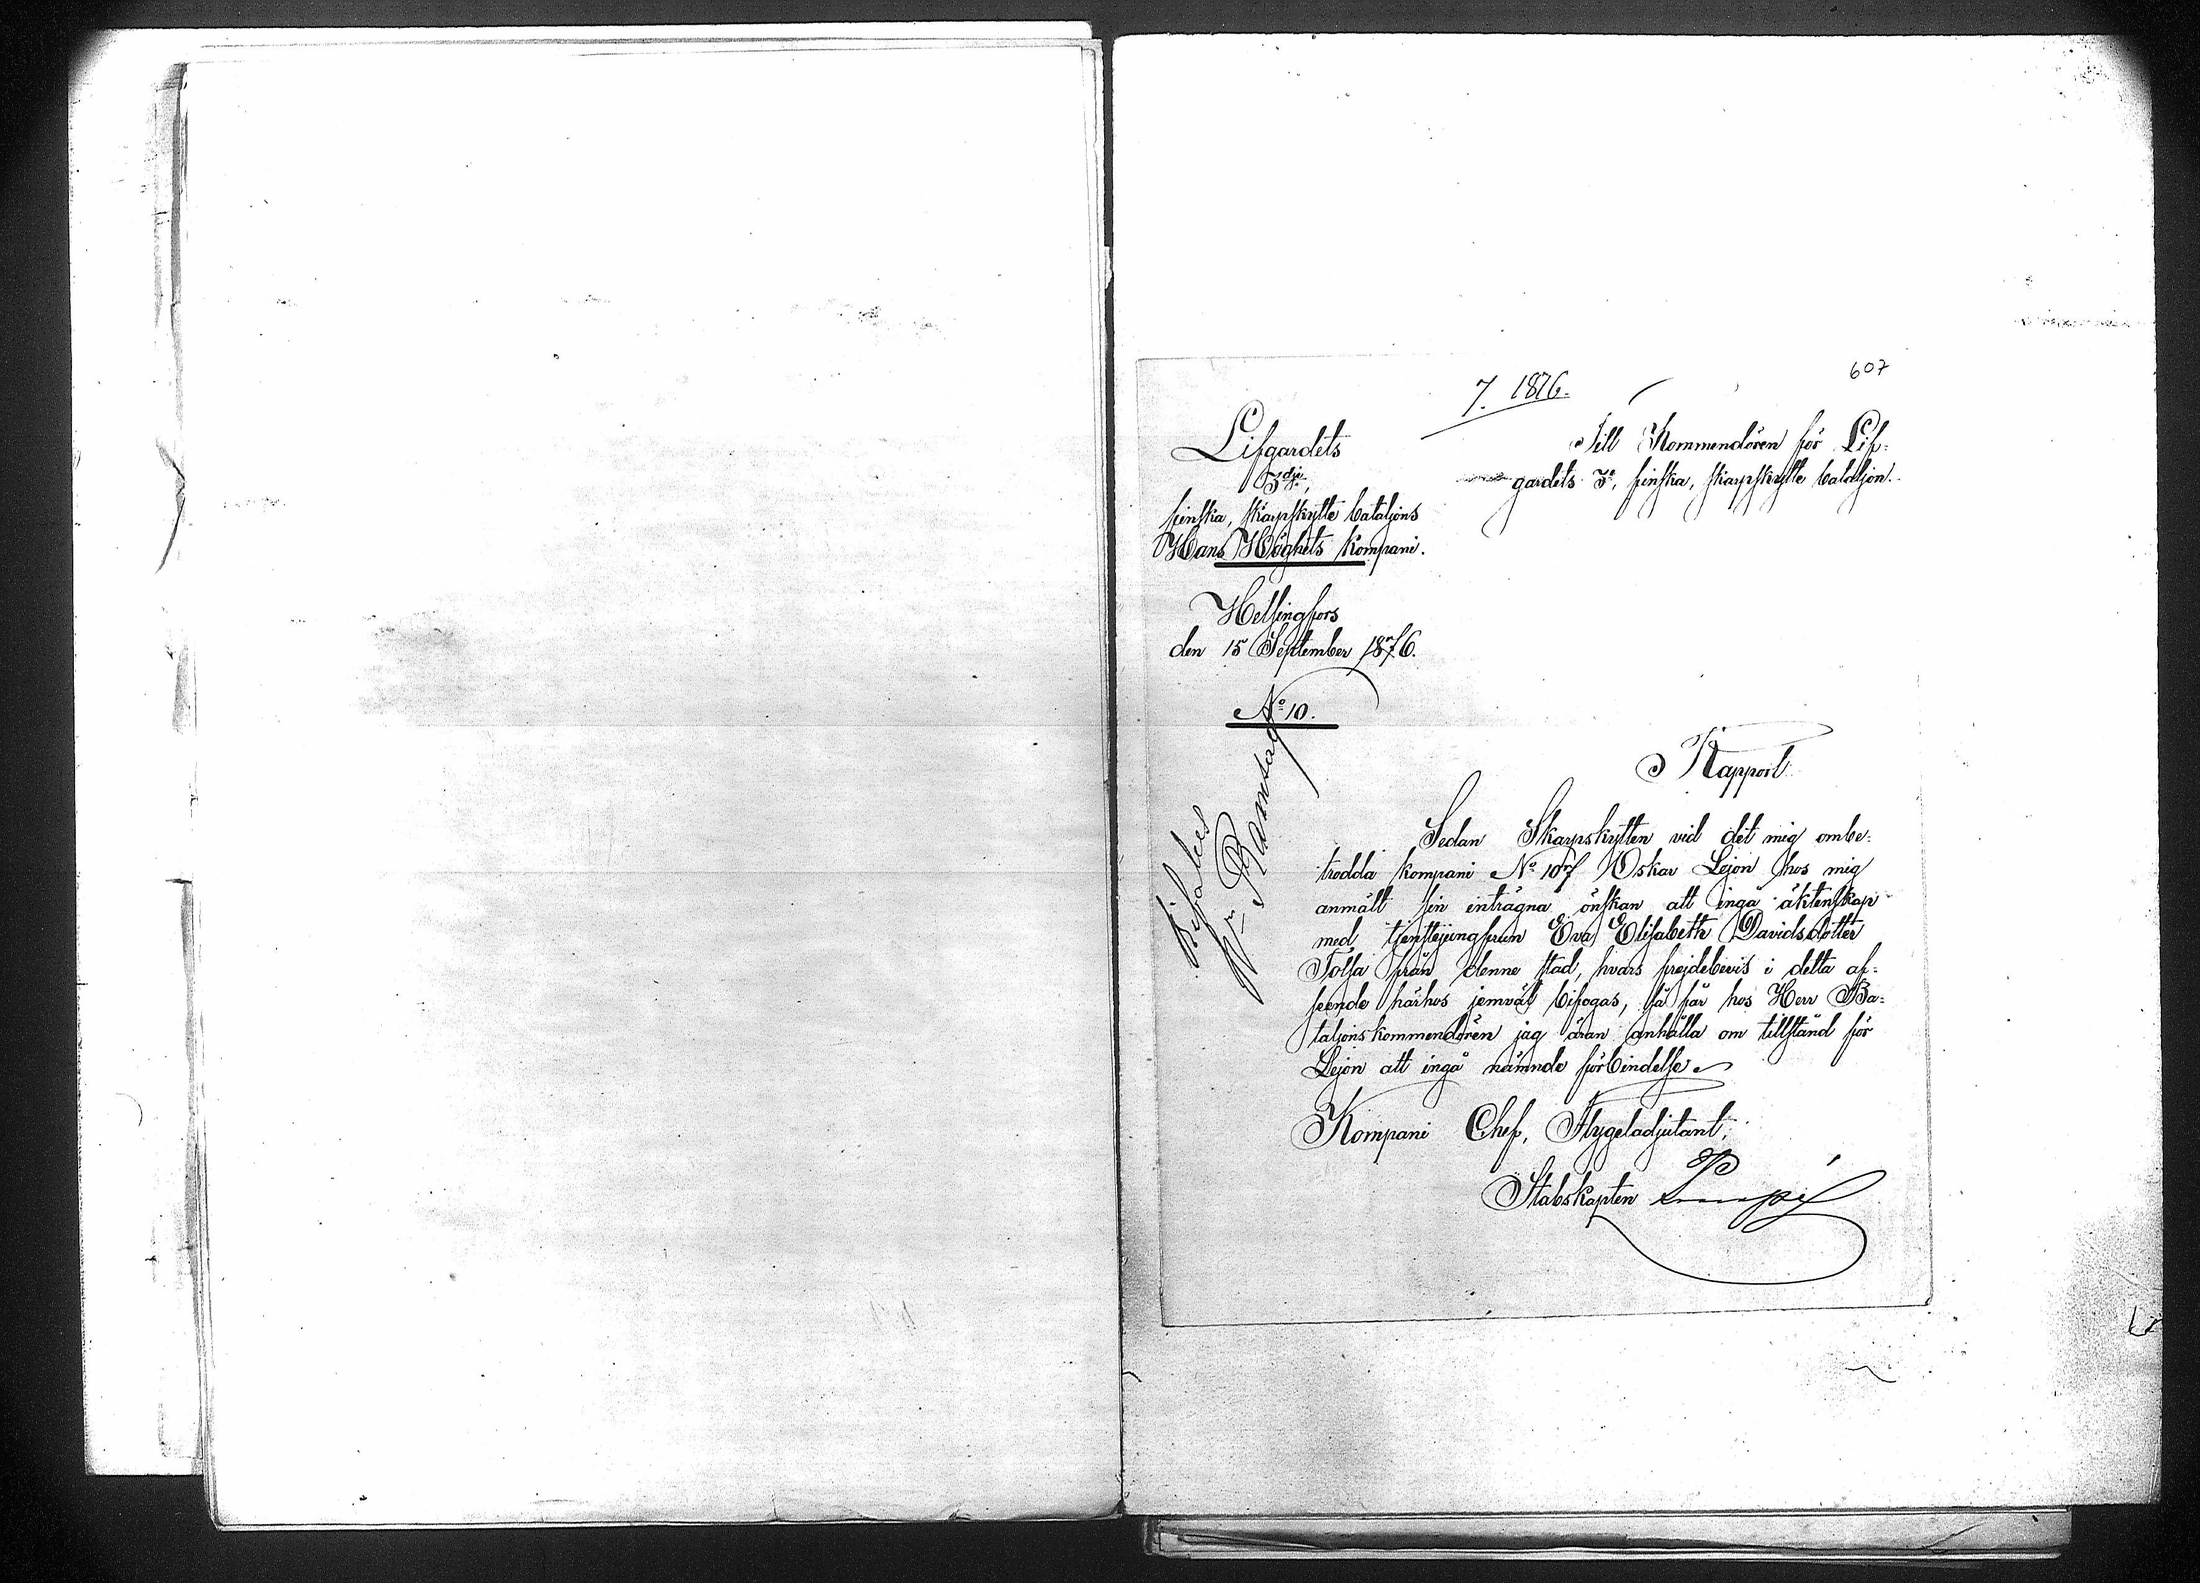 607
7. 1876.
Lifgardets
3dje,
finska, skarpskytte bataljons
Hans Höghets kompani.
Helsingfors
den 15 September 1876.
No 10.
Till Kommendören för Lif-
gardets 3e, finska, skarpskytte bataljon.
Bifalles
Rapport
Sedan Skarpskytten vid det mig ombe-
trodda kompani No 107 Oskar Lejon hos mig
anmält sin enträgna önskan att ingå äktenskap
med tjenstejungfrun Eva Elisabeth Davidsdotter
Tolsa från denne stad, hvars frejdebevis i detta af-
seende härhos jemväl bifogas, så får hos Herr Ba-
taljonskommendören jag äran anhålla om tillstånd för
Lejon att ingå nämnde förbindelse.
Kompani Chef, Flygeladjutant,
Stabskapten